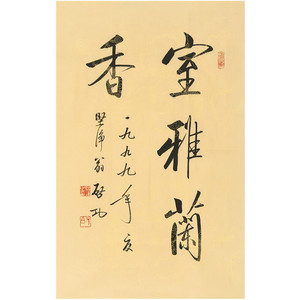 室雅蘭
香
一九九九年夏
堅净翁启功